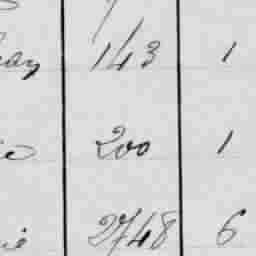 143 1
200 1
2748 6